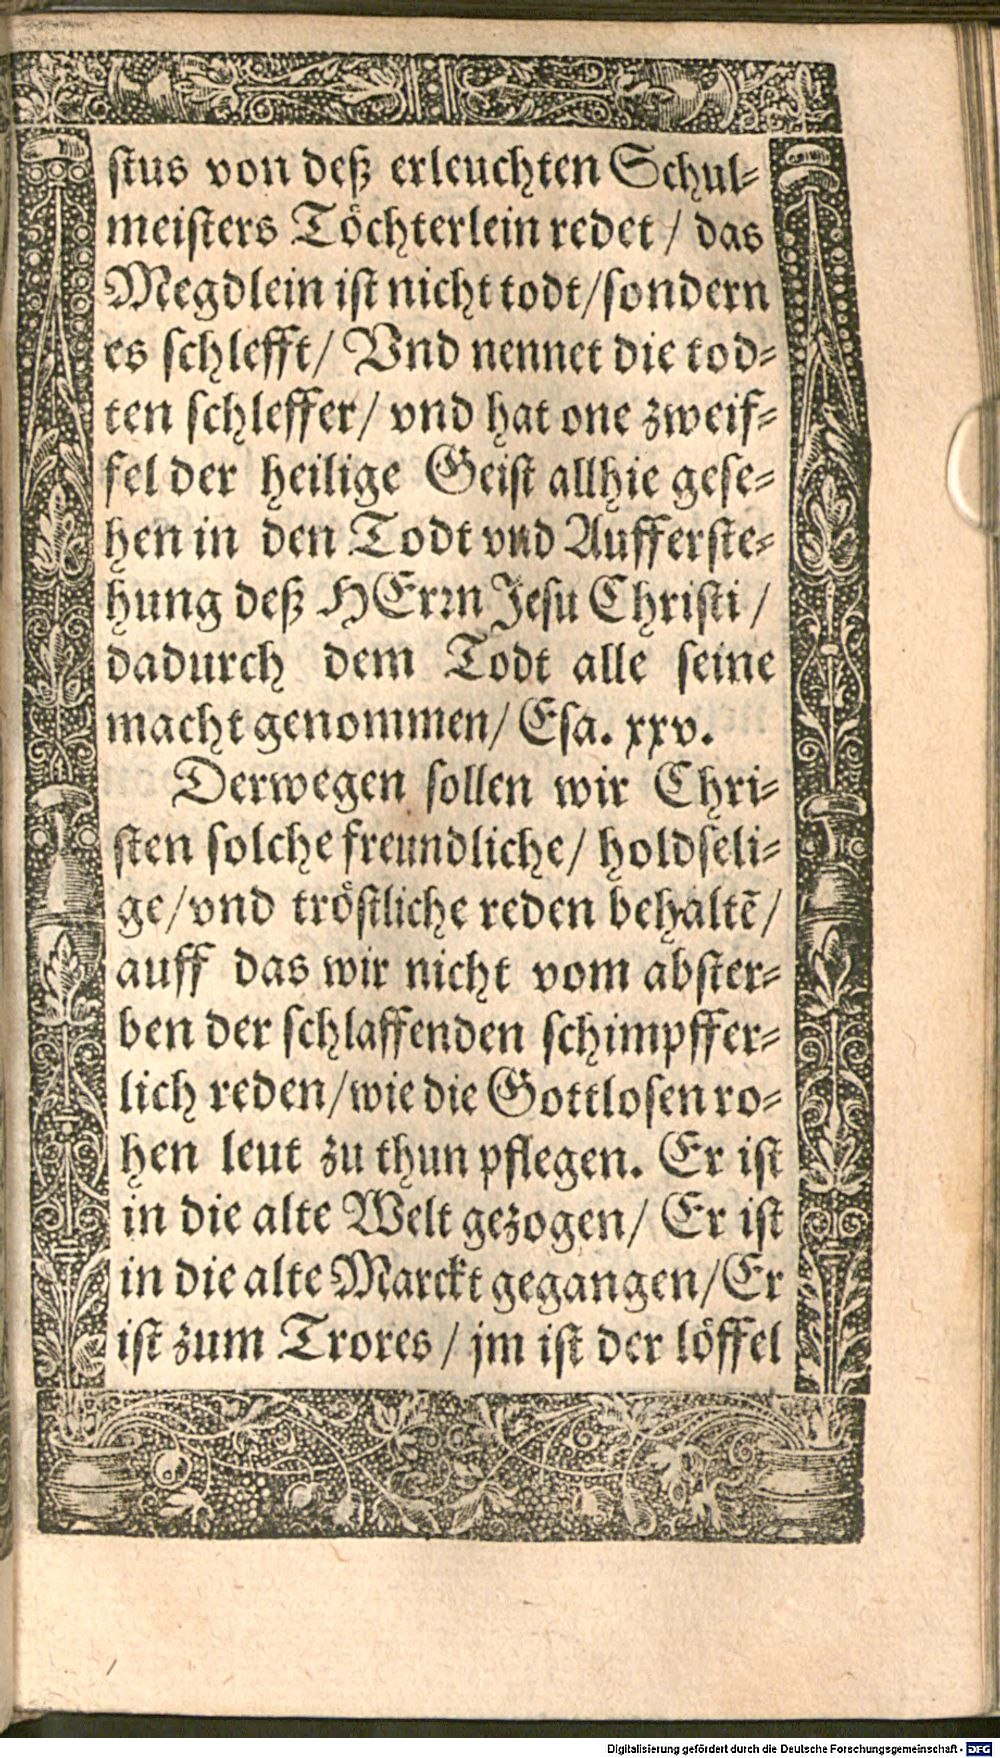 stus von deß erleuchten Schul⸗
meisters Töchterlein redet / das
Megdlein ist nicht todt/sondern
es schlefft/ Vnd nennet die tod⸗
ten schleffer/ vnd hat one zweif⸗
fel der heilige Geist allhie gese⸗
hen in den Todt vnd Aufferste⸗
hung deß HErrn Jesu Christi /
dadurch dem Todt alle seine
macht genommen/ Esa. xxv.
Derwegen sollen wir Chri⸗
sten solche freundliche/ holdseli⸗
ge/vnd tröstliche reden behaltē/
auff das wir nicht vom abster⸗
ben der schlaffenden schimpffer⸗
lich reden/wie die Gottlosen ro⸗
hen leut zu thun pflegen. Er ist
in die alte Welt gezogen/ Er ist
in die alte Marckt gegangen/Er
ist zum Trores / jm ist der löffel
Digitalisierung gefördert durch die Deutsche Forschungsgemeinschaft - DFG